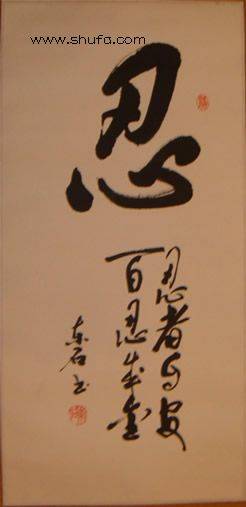 www.shufa.com
忍
忍者自安
百忍成金
东石书